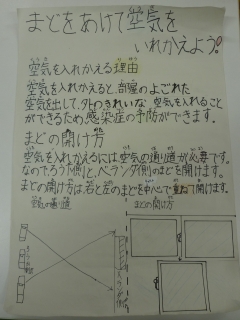 まどをあけて空気を
いれかえよう。
空気を入れかえる理由
空気を入れかえると、部屋のよごれた
空気を出して、外のきれいな空気を入れること
ができるため感染症の予防ができます。
まどの開け方
空気を入れかえるには空気の通り道が必要です。
なのでろう下側と、ベランダ側のまどを開けます。
まどの開け方は、右と左のまどを中心で重ねて開けます。
空気の通り道
まどの開け方
ろう下側
ベランダ側